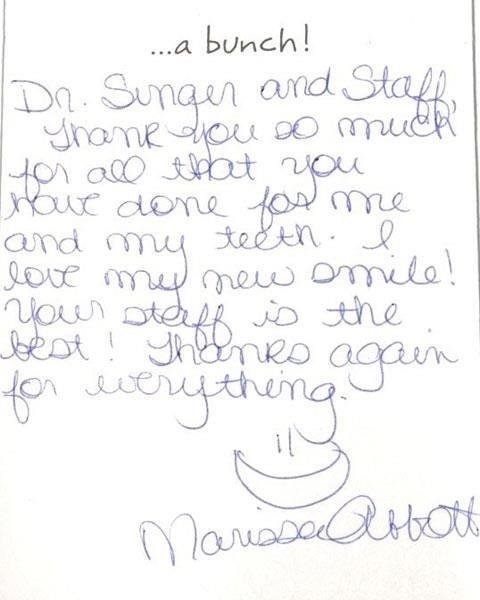 ...a bunch!
Dr. Singer and Staff,
Thank you so much
for all that you
have done for me
and my teeth. I
love my new smile!
Your staff is the
best! Thanks again
for everything.
Marissa Abbott